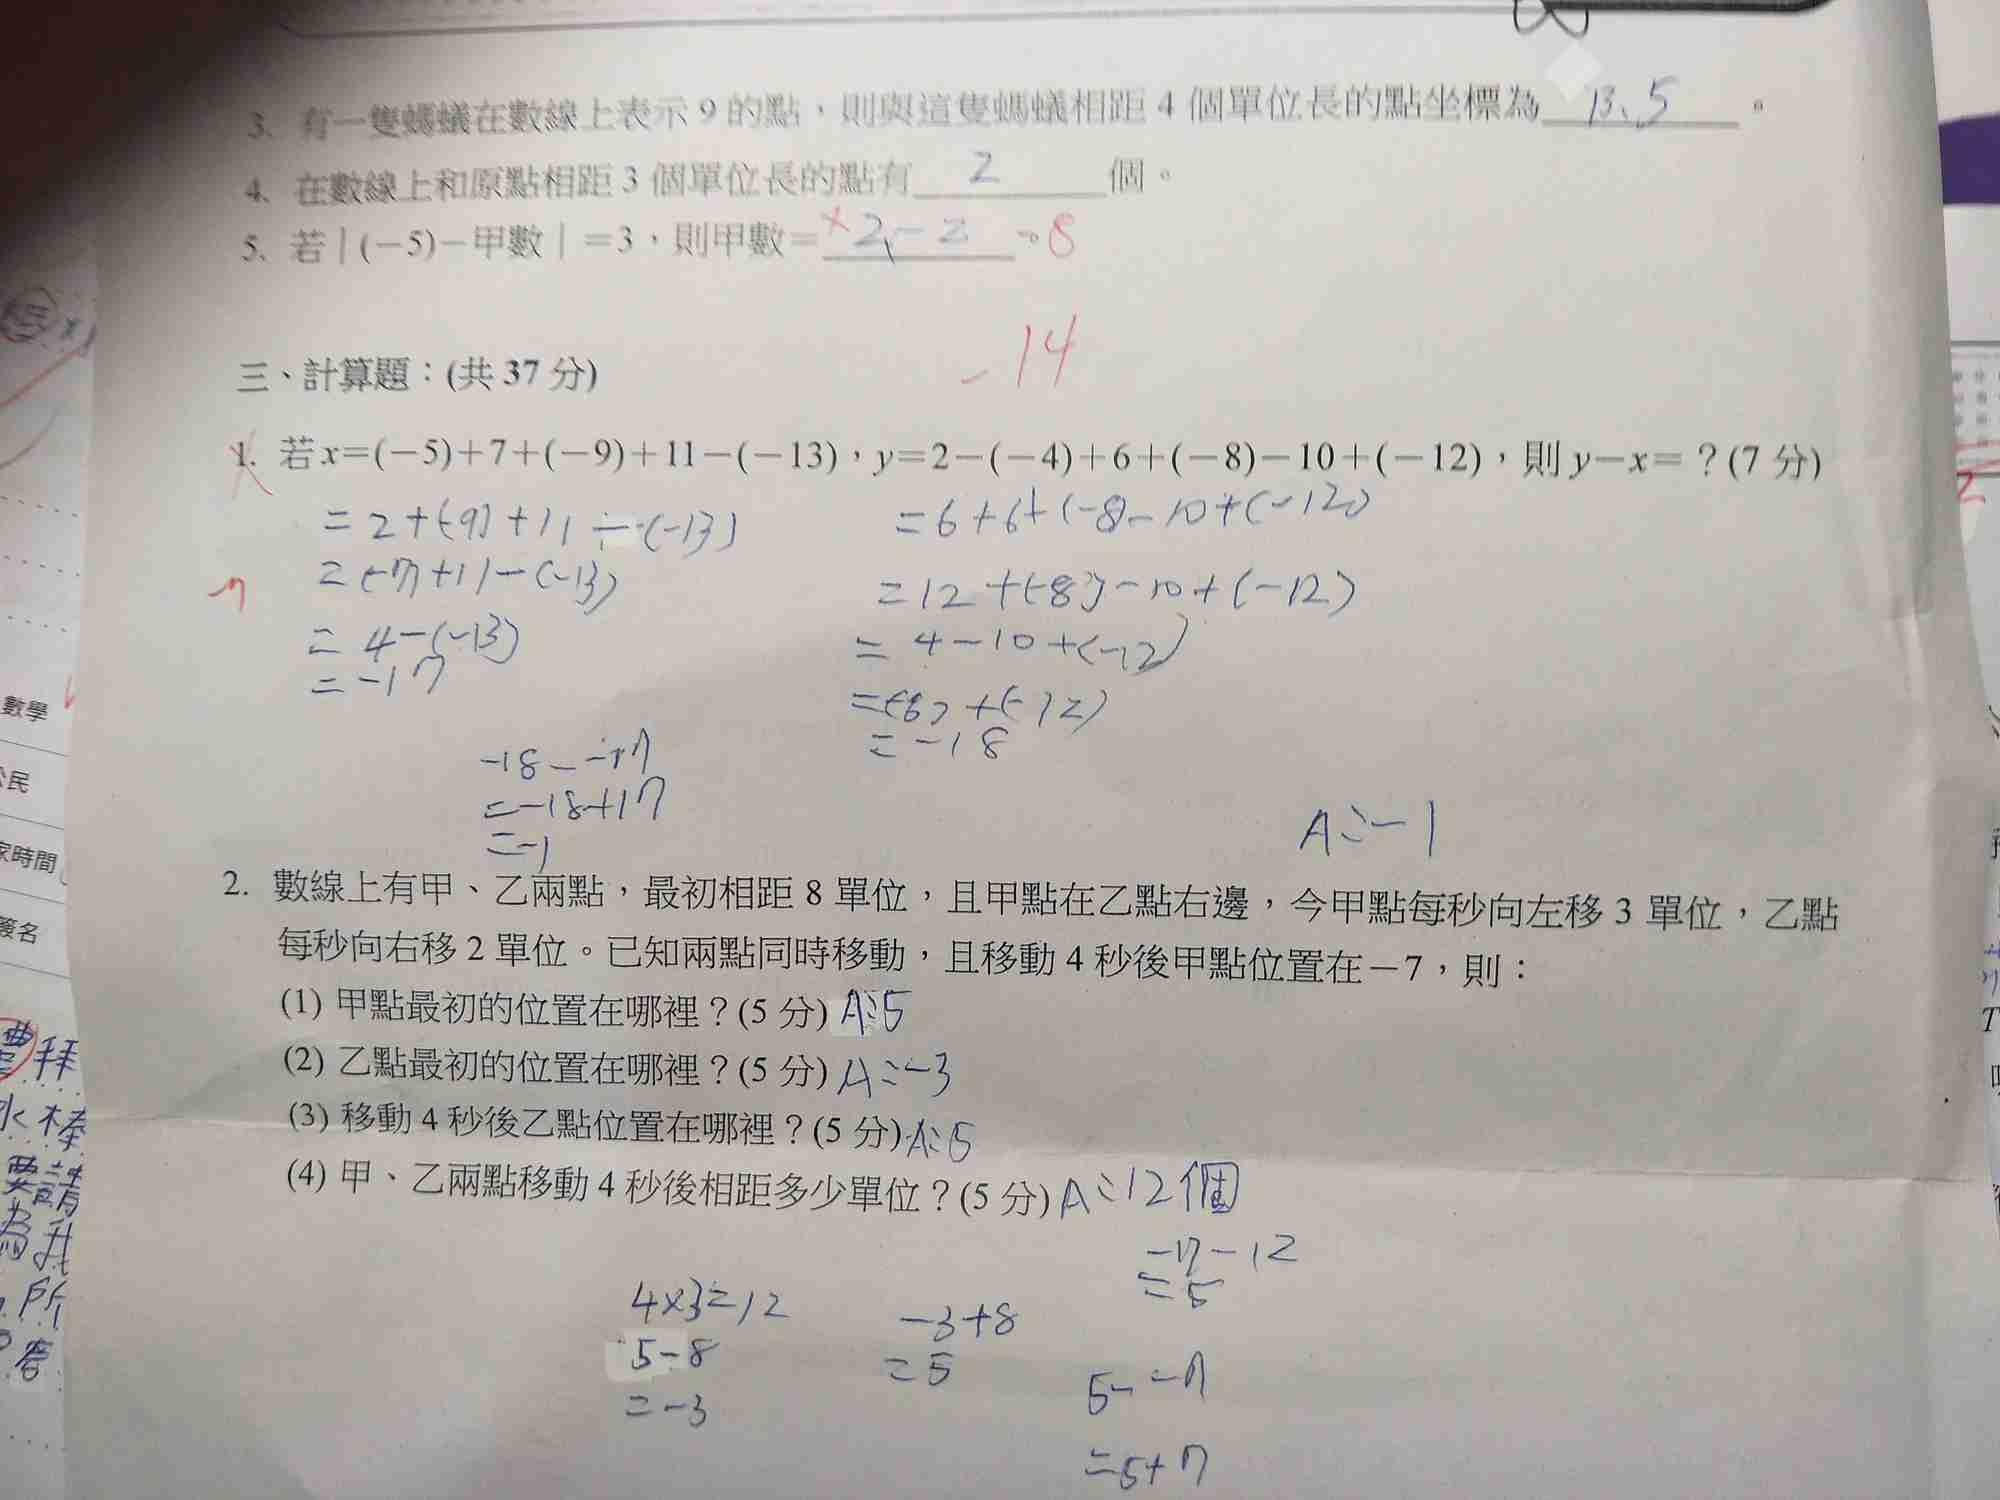 3. 有一隻螞蟻在數線上表示 9 的點，則與這隻螞蟻相距 4 個單位長的點坐標為 13、5 。
4. 在數線上和原點相距 3 個單位長的點有 2 個。
5. 若｜(－5)－甲數｜＝3，則甲數＝ × 2、－2 。-8
-14
三、計算題：(共 37 分)
1. 若 x＝(－5)＋7＋(－9)＋11－(－13)，y＝2－(－4)＋6＋(－8)－10＋(－12)，則 y－x＝？(7 分)
=2+(-9)+11-(-13)
=6+6+(-8)-10+(-12)
=(-7)+11-(-13)
-7
=12+(-8)-10+(-12)
=4-(-13)
=4-10+(-12)
=-17
=(-6)+(-12)
=-18
-18--17
=-18+17
=-1
A:-1
2. 數線上有甲、乙兩點，最初相距 8 單位，且甲點在乙點右邊，今甲點每秒向左移 3 單位，乙點
每秒向右移 2 單位。已知兩點同時移動，且移動 4 秒後甲點位置在－7，則：
(1) 甲點最初的位置在哪裡？(5 分) A:5
(2) 乙點最初的位置在哪裡？(5 分) A:-3
(3) 移動 4 秒後乙點位置在哪裡？(5 分) A:5
(4) 甲、乙兩點移動 4 秒後相距多少單位？(5 分) A:12個
-7-12
=5
4×3=12
5-8
=-3
-3+8
=5
5--7
=5+7
數學
公民
家時間
簽名
拜
水棒
要請
為我
所